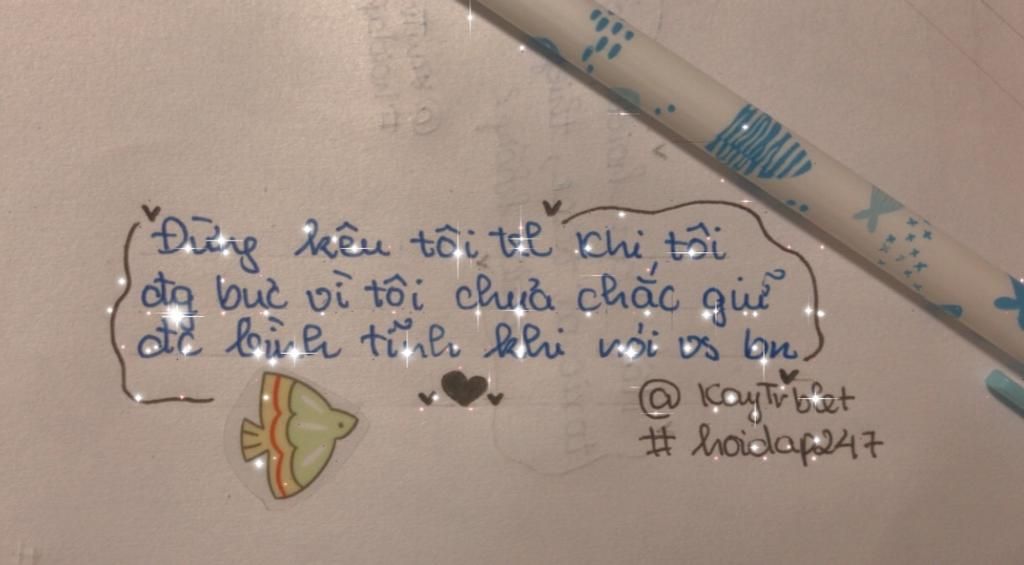 Đừng kêu tôi tl khi tôi
đg bực vì tôi chưa chắc giữ
đc bình tĩnh khi nói vs bn
@ KayTrblet
# hoidap247